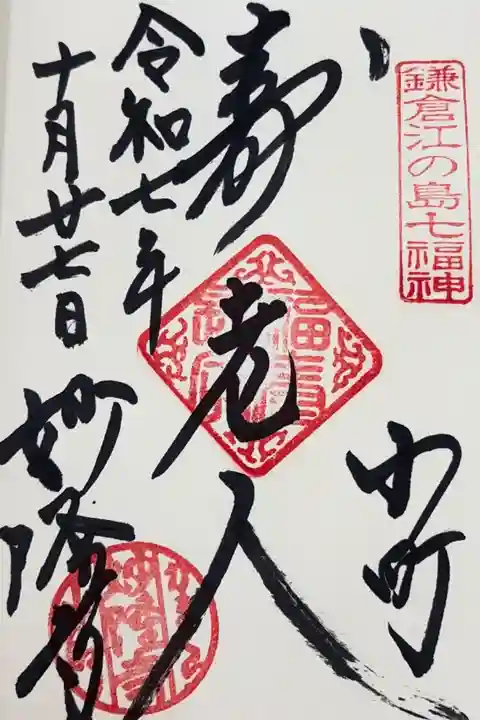 鎌倉江の島七福神
小町
寿老人
令和七年
十月廿七日
妙隆寺